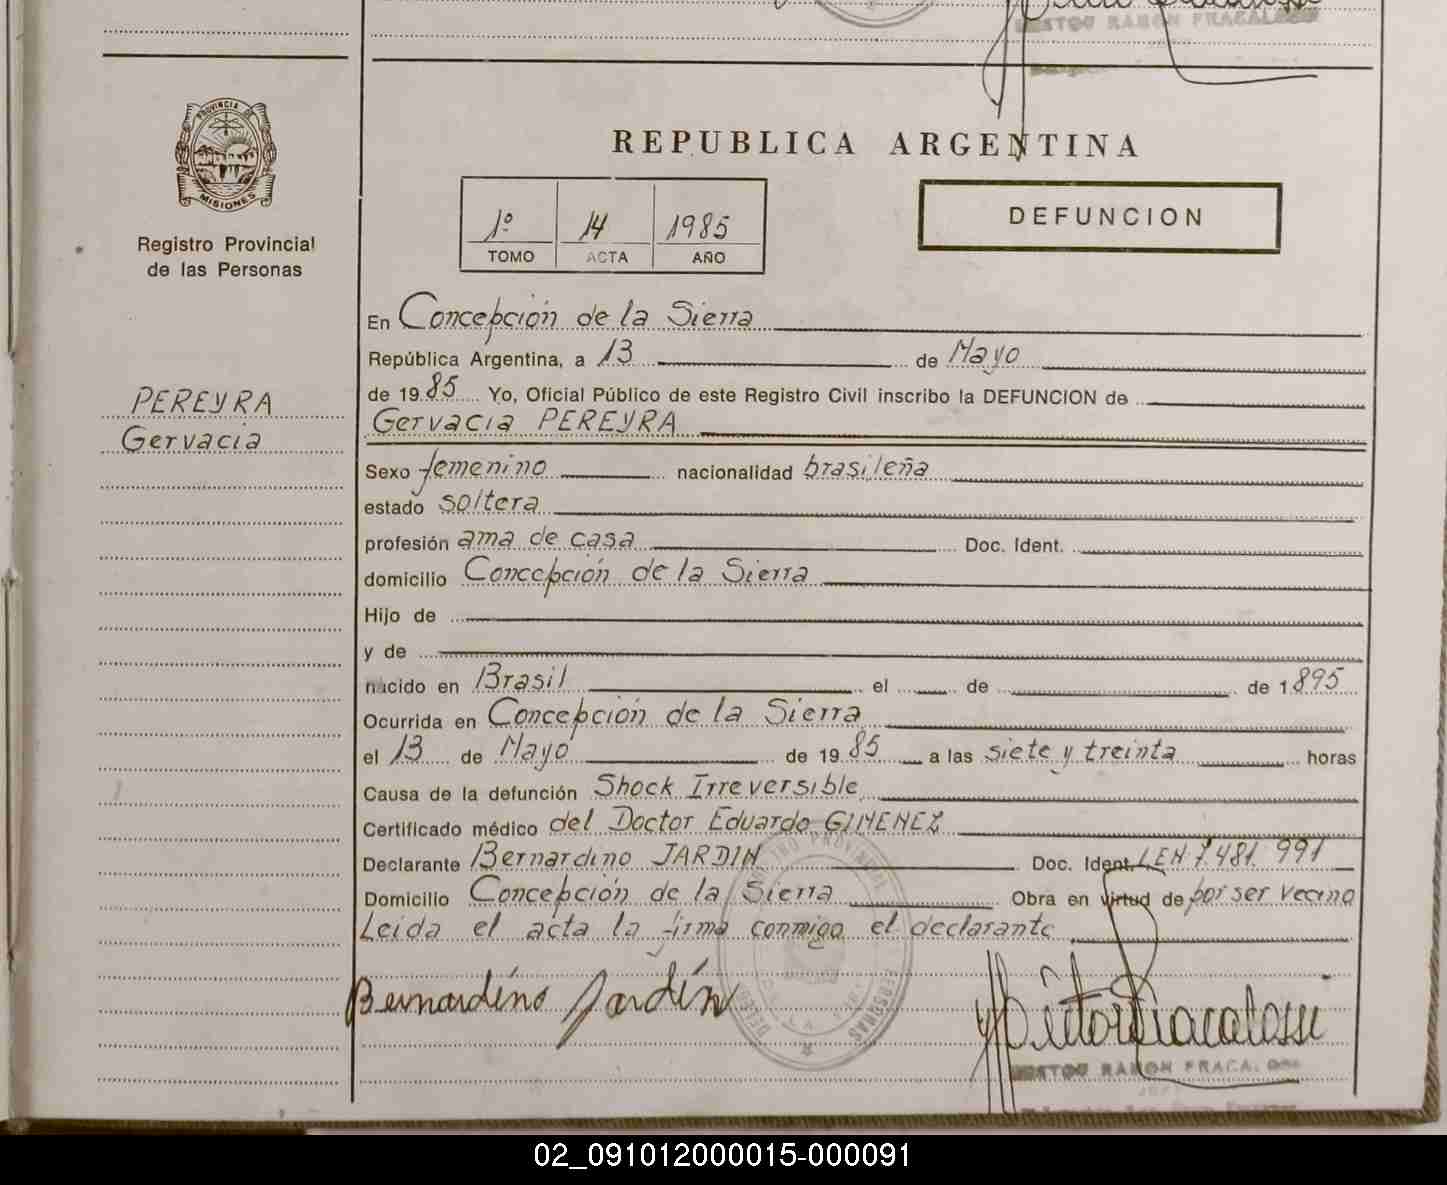 RAMON FRACALOSSI
PROVINCIA DE
MISIONES
Registro Provincial
de las Personas
REPUBLICA ARGENTINA
1º 14 1985
TOMO ACTA AÑO
DEFUNCION
PEREYRA
Gervacia
En Concepción de la Sierra
República Argentina, a 13 de Mayo
de 1985 Yo, Oficial Público de este Registro Civil inscribo la DEFUNCION de
Gervacia PEREYRA
Sexo femenino nacionalidad brasileña
estado soltera
profesión ama de casa Doc. Ident.
domicilio Concepción de la Sierra
Hijo de
y de
nacido en Brasil el de de 1895
Ocurrida en Concepción de la Sierra
el 13 de Mayo de 1985 a las siete y treinta horas
Causa de la defunción Shock Irreversible
Certificado médico del Doctor Eduardo GIMENEZ
Declarante Bernardino JARDIN Doc. Ident. LEN 7.481.991
Domicilio Concepción de la Sierra Obra en virtud de por ser vecino
Leida el acta la firma conmigo el declarante
Bernardino Jardín
RAMON FRACALOSSI
02_091012000015-000091